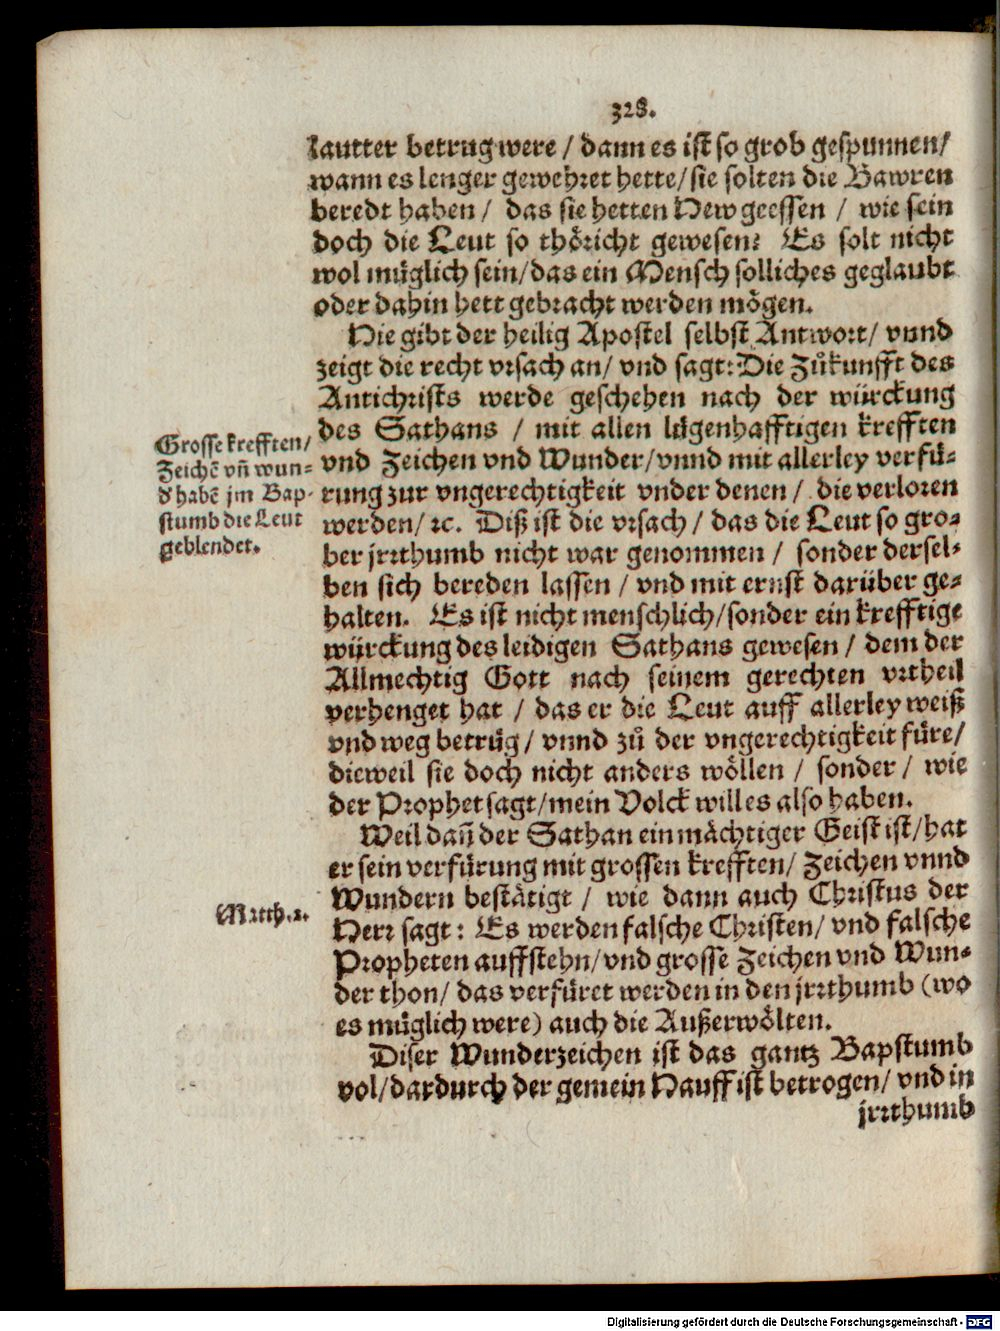 328.
lautter betrug were / dann es ist so grob gespunnen/
wann es lenger gewehret hette/ sie solten die Bawren
beredt haben / das sie hetten Hew geessen / wie sein
doch die Leut so thöricht gewesen? Es solt nicht
wol müglich sein/ das ein Mensch solliches geglaubt
oder dahin hett gebracht werden mögen.
Hie gibt der heilig Apostel selbst Antwort/ vnnd
zeigt die recht vrsach an/ vnd sagt: Die Zůkunfft des
Antichrists werde geschehen nach der würckung
des Sathans / mit allen lügenhafftigen krefften
vnd Zeichen vnd Wunder/ vnnd mit allerley verfü-
rung zur vngerechtigkeit vnder denen / die verloren
werden/ ꝛc. Diß ist die vrsach / das die Leut so gro-
ber jrrthumb nicht war genommen / sonder dersel-
ben sich bereden lassen / vnd mit ernst darüber ge-
halten. Es ist nicht menschlich/ sonder ein krefftige
würckung des leidigen Sathans gewesen / dem der
Allmechtig Gott nach seinem gerechten vrtheil
verhenget hat / das er die Leut auff allerley weiß
vnd weg betrüg / vnnd zů der vngerechtigkeit füre/
dieweil sie doch nicht anders wöllen / sonder / wie
der Prophet sagt/ mein Volck will es also haben.
Weil dañ der Sathan ein mächtiger Geist ist/ hat
er sein verfürung mit grossen krefften/ Zeichen vnnd
Wundern bestätigt / wie dann auch Christus der
Herr sagt: Es werden falsche Christen/ vnd falsche
Propheten auffstehn/ vnd grosse Zeichen vnd Wun-
der thon/ das verfüret werden in den jrrthumb (wo
es müglich were) auch die Außerwölten.
Diser Wunderzeichen ist das gantz Bapstumb
vol/ dardurch der gemein Hauff ist betrogen/ vnd in
jrrthumb
Grosse krefften/
Zeichẽ vñ wun-
d' habẽ jm Bap-
stumb die Leut
geblendet.
Matth. 2.
Digitalisierung gefördert durch die Deutsche Forschungsgemeinschaft - DFG